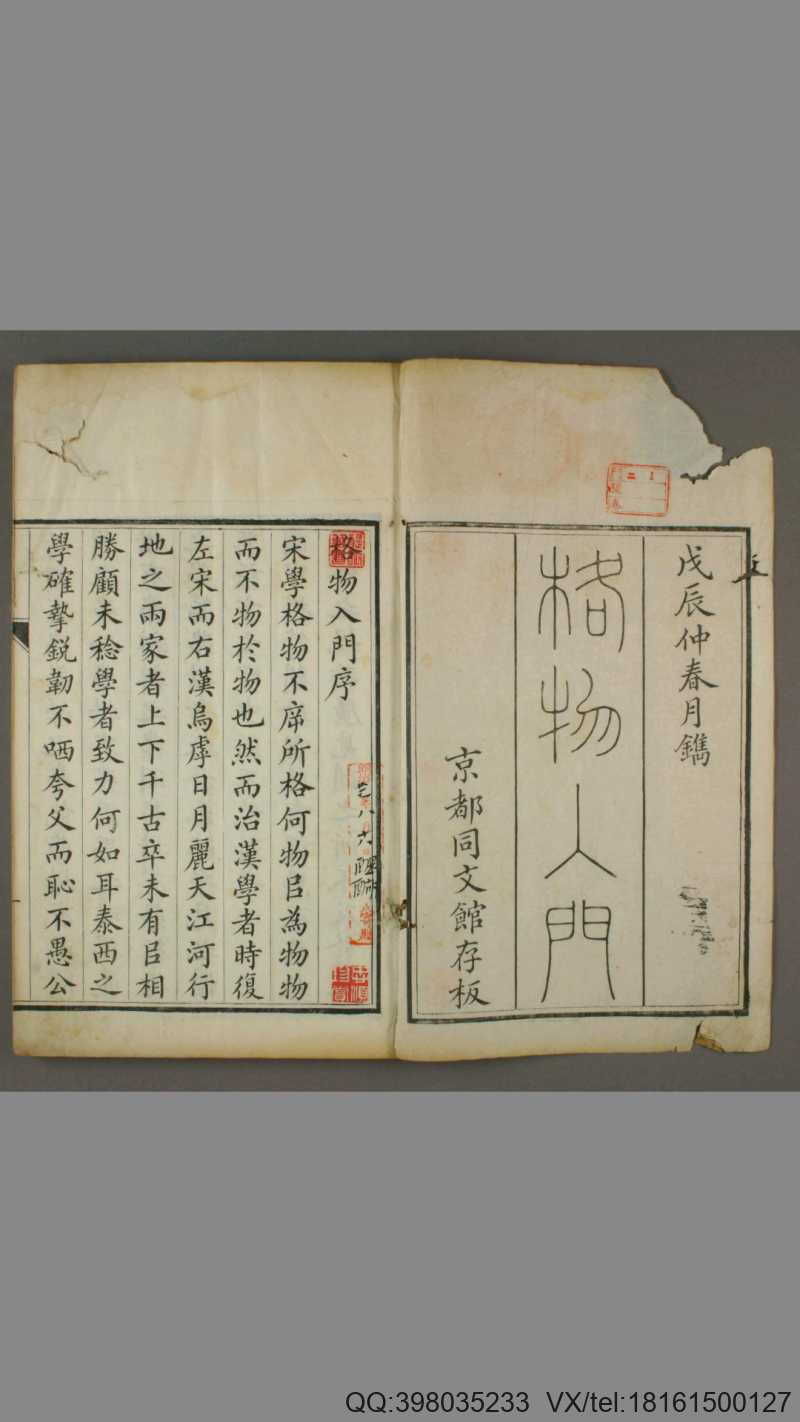 戊辰仲春月鐫
格物入門
京都同文館存板
格物入門序
宋學格物不席所格何物㠯為物物
而不物於物也然而治漢學者時復
左宋而右漢烏虖日月麗天江河行
地之兩家者上下千古卒未有㠯相
勝顧未稔學者致力何如耳泰西之
學確摯銳韌不哂夸父而恥不愚公
QQ:398035233 VX/tel:18161500127